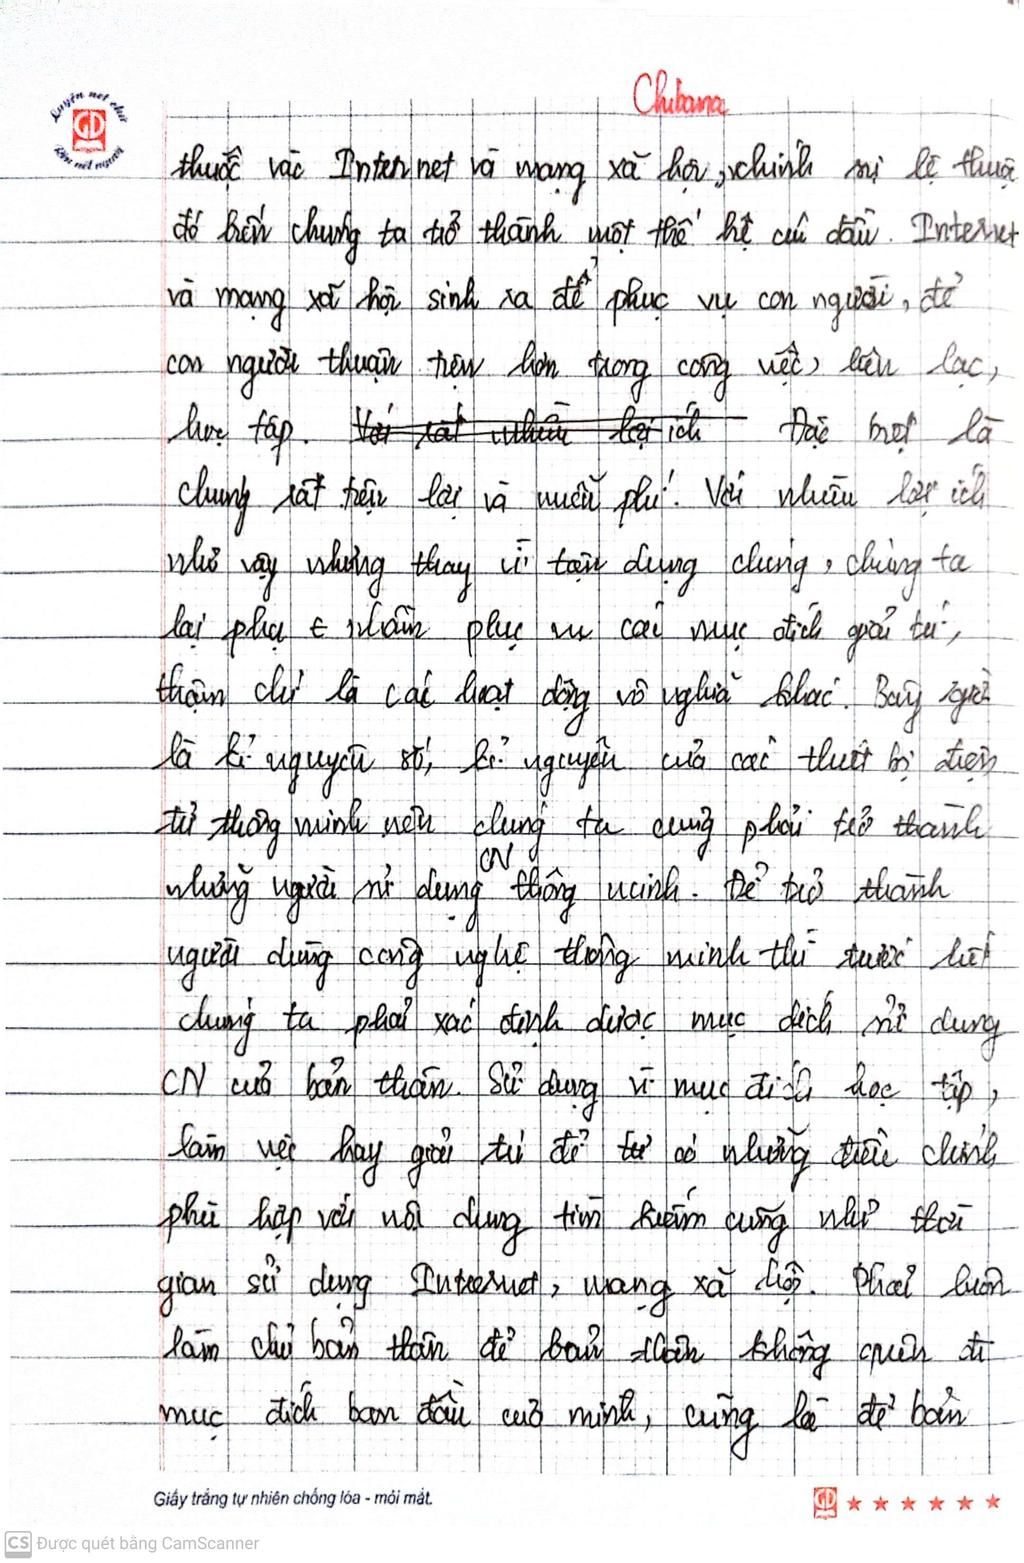 Chibana
Luyện nét chữ
GD
Rèn nết người
thuộc vào Internet và mạng xã hội, chính sự lệ thuộc
đó biến chúng ta trở thành một thế hệ cúi đầu. Internet
và mạng xã hội sinh ra để phục vụ con người, để
con người thuận tiện hơn trong công việc, liên lạc,
học tập. Với rất nhiều lợi ích Đặc biệt là
chúng rất tiện lợi và miễn phí. Với nhiều lợi ích
như vậy nhưng thay vì tận dụng chúng, chúng ta
lại phụ t nhằm phục vụ cái mục đích giải trí,
thậm chí là các hoạt động vô nghĩa khác. Bây giờ
là kỉ nguyên số, kỉ nguyên của các thiết bị điện
tử thông minh nên chúng ta cũng phải trở thành
những người sử dụng CN thông minh. Để trở thành
người dùng công nghệ thông minh thì trước hết
chúng ta phải xác định được mục đích sử dụng
CN của bản thân. Sử dụng vì mục đích học tập,
làm việc hay giải trí để từ có những điều chỉnh
phù hợp với nội dung tìm kiếm cũng như thời
gian sử dụng Internet, mạng xã hội. Phải luôn
làm chủ bản thân để bản thân không quên đi
mục đích ban đầu của mình, cũng là để bản
Giấy trắng tự nhiên chống lóa - mỏi mắt.
GD
CS Được quét bằng CamScanner